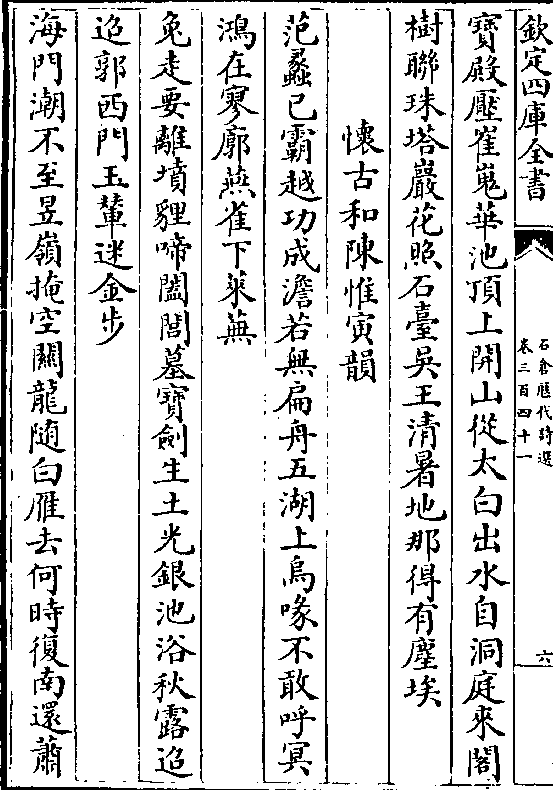 欽定四庫全書
石倉歷代詩選
卷三百四十一
六
寶殿壓崔嵬華池頂上開山從太白出水自洞庭來閣
樹聯珠塔巖花照石臺吳王清暑地那得有塵埃
懷古和陳惟寅韻
范蠡已霸越功成澹若無扁舟五湖上烏喙不敢呼冥
鴻在寥廓燕雀下萊蕪
兔走要離墳貍啼闔閭墓寶劍生土光銀池浴秋露迢
迢郭西門玉輦迷金步
海門潮不至昱嶺掩空關龍隨白雁去何時復南還蕭